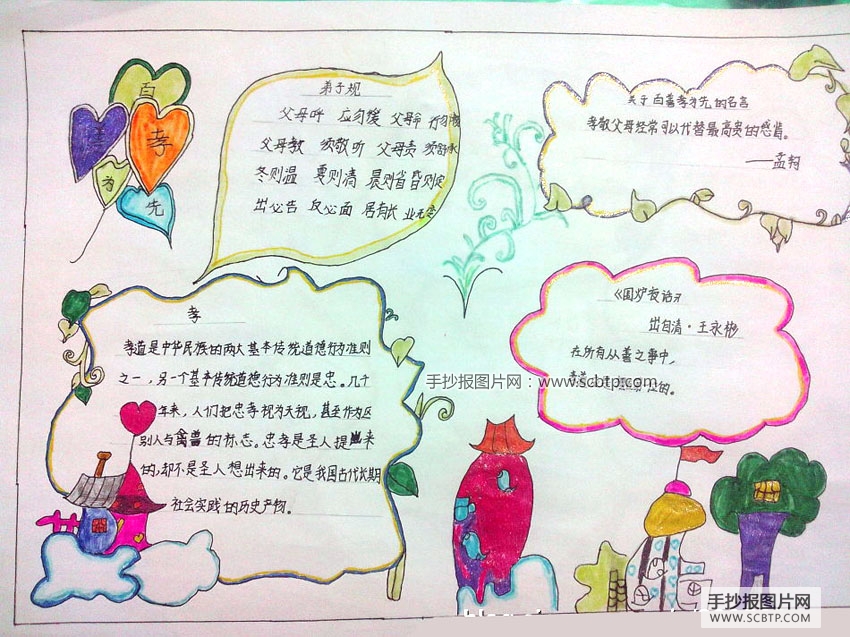 百
善
孝
为
先
弟子规
父母呼 应勿缓 父母命 行勿懒
父母教 须敬听 父母责 须顺承
冬则温 夏则清 晨则省 昏则定
出必告 反必面 居有长 业无变
关于百善孝为先的名言
孝敬父母经常可以代替最高贵的感情。
——孟轲
孝
孝道是中华民族的两大基本传统道德行为准则
之一，另一个基本传统道德行为准则是忠。几千
年来，人们把忠孝视为天视，甚至作为区
别人与禽兽的标志。忠孝是圣人提出来
的，却不是圣人想出来的。它是我国古代长期
社会实践的历史产物。
《围炉夜话》
出自清·王永彬
在所有从善之事中，
位的。
手抄报图片网：www.scbtp.com
手抄报图片网
WWW.SCBTP.COM